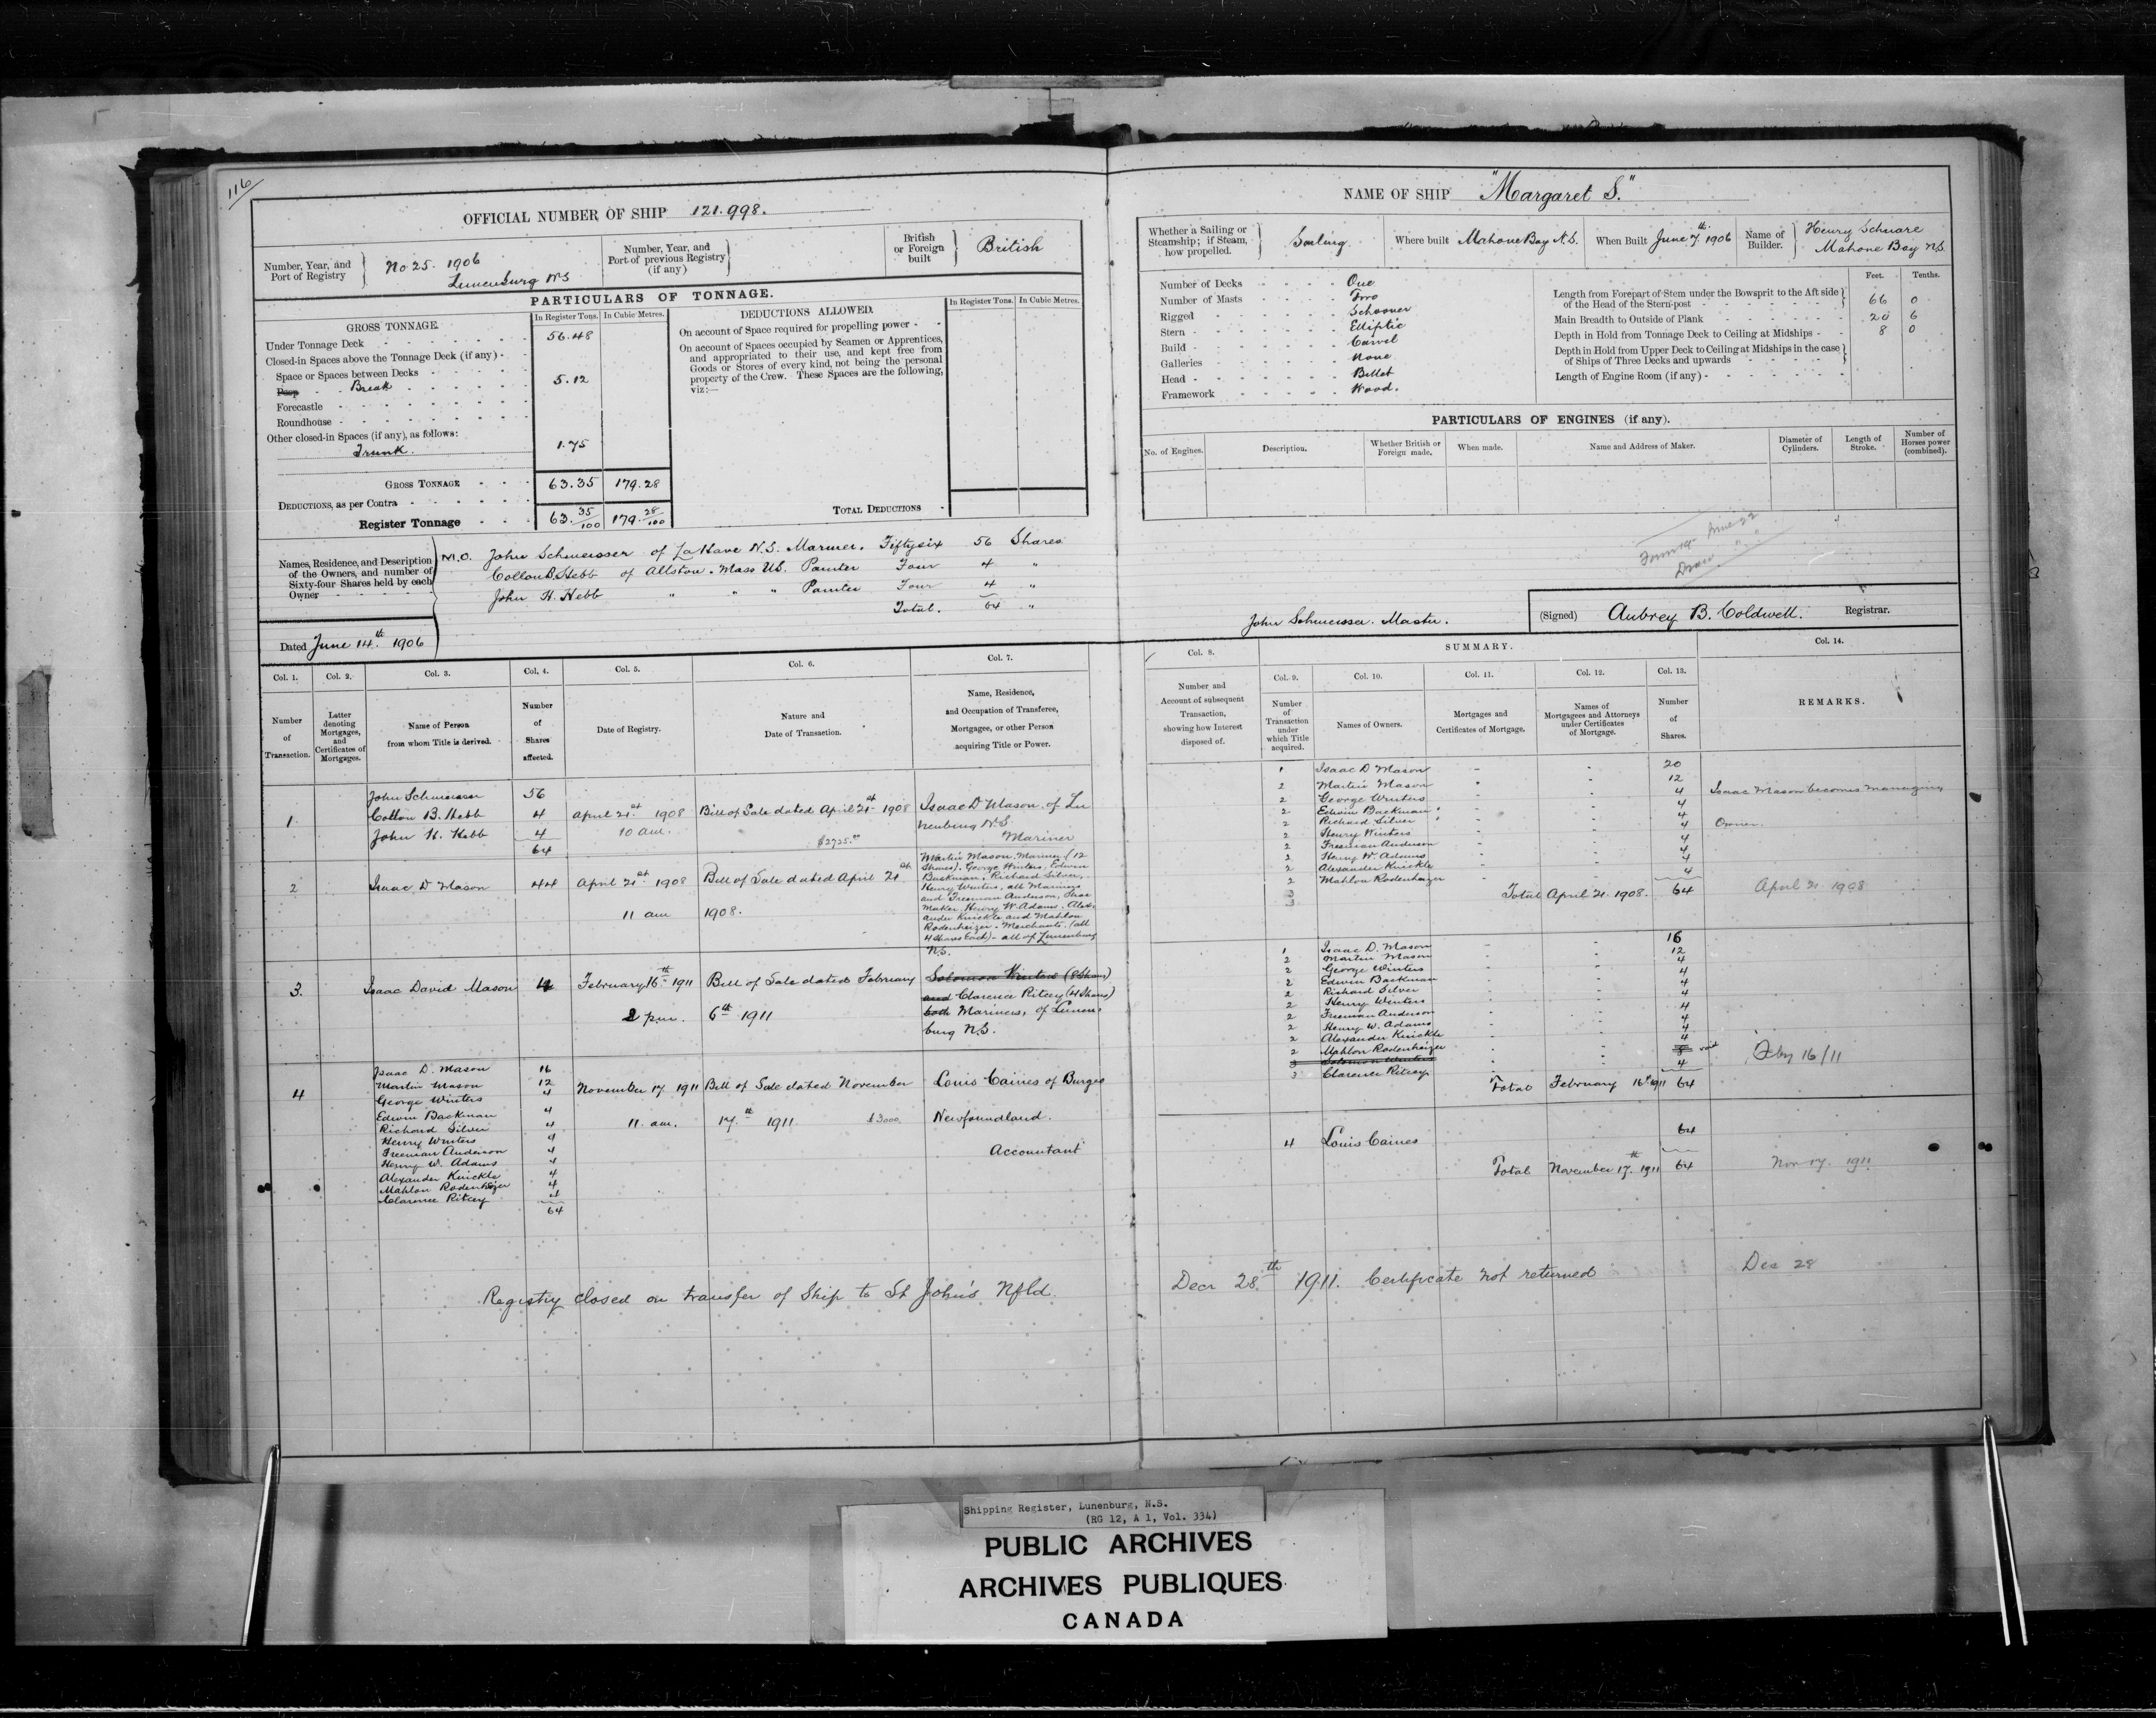 116
OFFICIAL NUMBER OF SHIP 121.998.
Number, Year, and Port of Registry
No 25. 1906
Lunenburg N S
Number, Year, and Port of previous Registry (if any)
British or Foreign built
British
PARTICULARS OF TONNAGE.
GROSS TONNAGE.
In Register Tons. In Cubic Metres.
Under Tonnage Deck 56.48
Closed-in Spaces above the Tonnage Deck (if any)
Space or Spaces between Decks
Poop Break 5.12
Forecastle
Roundhouse
Other closed-in Spaces (if any), as follows:
Trunk. 1.75
GROSS TONNAGE 63.35 179.28
DEDUCTIONS, as per Contra
Register Tonnage 63. 35/100 179. 28/100
DEDUCTIONS ALLOWED.
In Register Tons. In Cubic Metres.
On account of Space required for propelling power
On account of Spaces occupied by Seamen or Apprentices,
and appropriated to their use, and kept free from
Goods or Stores of every kind, not being the personal
property of the Crew. These Spaces are the following,
viz:—
TOTAL DEDUCTIONS
Names, Residence, and Description
of the Owners, and number of
Sixty-four Shares held by each
Owner
M.O. John Schmeisser of LaHave N.S. Mariner. Fiftysix 56 Shares
Colton B. Hebb of Allston. Mass US. Painter Four 4 "
John H. Hebb " " " Painter Four 4 "
Total. 64 "
Dated June 14th 1906
NAME OF SHIP "Margaret S."
Whether a Sailing or Steamship; if Steam, how propelled.
Sailing
Where built Mahone Bay N.S.
When Built June 7th 1906
Name of Builder.
Henry Schnare
Mahone Bay N.S.
Number of Decks One
Number of Masts Two
Rigged Schooner
Stern Elliptic
Build Carvel
Galleries None
Head Billet
Framework Wood.
Feet. Tenths.
Length from Forepart of Stem under the Bowsprit to the Aft side
of the Head of the Stern-post 66 0
Main Breadth to Outside of Plank 20 6
Depth in Hold from Tonnage Deck to Ceiling at Midships 8 0
Depth in Hold from Upper Deck to Ceiling at Midships in the case
of Ships of Three Decks and upwards
Length of Engine Room (if any)
PARTICULARS OF ENGINES (if any).
No. of Engines. Description. Whether British or Foreign made. When made. Name and Address of Maker. Diameter of Cylinders. Length of Stroke. Number of Horses power (combined).
Form 19 June 22
Draw " "
John Schmeisser. Master.
(Signed) Aubrey B. Coldwell. Registrar.
Col. 1. Col. 2. Col. 3. Col. 4. Col. 5. Col. 6. Col. 7.
Number of Transaction.
Letter denoting Mortgages, and Certificates of Mortgages.
Name of Person from whom Title is derived.
Number of Shares affected.
Date of Registry.
Nature and Date of Transaction.
Name, Residence, and Occupation of Transferee, Mortgagee, or other Person acquiring Title or Power.
1.
John Schmeisser 56
Colton B. Hebb 4
John H. Hebb 4
64
April 21st 1908
10 am.
Bill of Sale dated April 21st 1908
$2725.00
Isaac D Mason of Lu
nenburg N.S
Mariner
2
Isaac D Mason 44
April 21st 1908
11 am
Bill of Sale dated April 21st
1908.
Martin Mason. Mariner (12
Shares). George Winters, Edwin
Backman, Richard Silver,
Henry Winters, all Mariners
and Freeman Anderson,
Maker, Henry W. Adams, Alex
ander Knickle and Mahlon
Rodenheizer. Merchants. (all
4 Shares Each) - all of Lunenburg
N.S.
3.
Isaac David Mason 4
February 16th 1911
2 pm.
Bill of Sale dated February
6th 1911
Solomon Winters (8 Shares)
and Clarence Ritcey (4 Shares)
both Mariners, of Lunen
burg N.S.
4
Isaac D. Mason 16
Martin Mason 12
George Winters 4
Edwin Backman 4
Richard Silver 4
Henry Winters 4
Freeman Anderson 4
Henry W. Adams 4
Alexander Knickle 4
Mahlon Rodenheizer 4
Clarence Ritcey 4
64
November 17 1911
11. am.
Bill of Sale dated November
17th 1911. $3000.
Louis Caines of Burgeo
Newfoundland.
Accountant
Registry closed on transfer of Ship to St John's Nfld.
Decr 28th 1911. Certificate not returned
Dec 28
Col. 8. SUMMARY. Col. 14.
Number and Account of subsequent Transaction, showing how Interest disposed of.
Col. 9. Col. 10. Col. 11. Col. 12. Col. 13.
Number of Transaction under which Title acquired.
Names of Owners.
Mortgages and Certificates of Mortgage.
Names of Mortgagees and Attorneys under Certificates of Mortgage.
Number of Shares.
REMARKS.
1 Isaac D Mason 20
2 Martin Mason 12
2 George Winters 4
2 Edwin Backman 4
2 Richard Silver 4
2 Henry Winters 4
2 Freeman Anderson 4
2 Henry W. Adams 4
2 Alexander Knickle 4
2 Mahlon Rodenheizer 4
Total April 21. 1908. 64
Isaac Mason becomes managing
Owner.
April 21 1908
1 Isaac D. Mason 16
2 Martin Mason 12
2 George Winters 4
2 Edwin Backman 4
2 Richard Silver 4
2 Henry Winters 4
2 Freeman Anderson 4
2 Henry W. Adams 4
2 Alexander Knickle 4
2 Mahlon Rodenheizer 4
3 Solomon Winters 8 void
3 Clarence Ritcey 4
Total February 16th 1911 64
Feby 16/11
4 Louis Caines 64
Total November 17th 1911 64
Nov 17. 1911
Shipping Register, Lunenburg, N.S.
(RG 12, A 1, Vol. 334)
PUBLIC ARCHIVES
ARCHIVES PUBLIQUES
CANADA